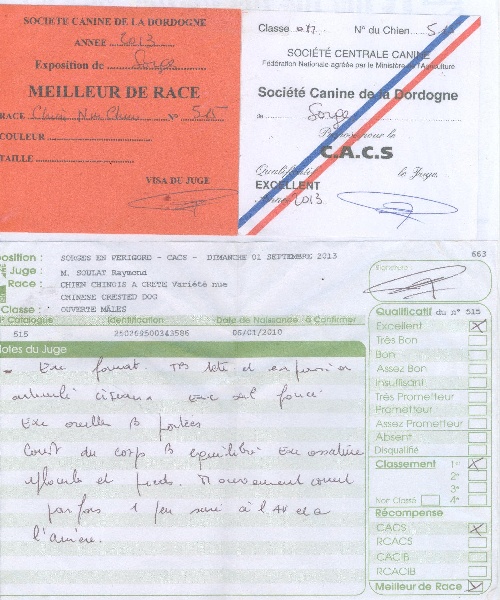 SOCIETE CANINE DE LA DORDOGNE
ANNÉE 2013
Exposition de Sorge
MEILLEUR DE RACE
RACE Chien Chinois N° 515
COULEUR
TAILLE
VISA DU JUGE
Classe N° du Chien 515
SOCIÉTÉ CENTRALE CANINE
Fédération Nationale agréée par le Ministère de l'Agriculture
Société Canine de la Dordogne
de Sorge
Proposé pour le
C.A.C.S
Qualificatif le Juge,
EXCELLENT
Année 2013
663
position : SORGES EN PERIGORD - CACS - DIMANCHE 01 SEPTEMBRE 2013
Juge : M. SOULAT Raymond
Race : CHIEN CHINOIS A CRETE Variété nue
CHINESE CRESTED DOG
Classe : OUVERTE MÂLES
N° Catalogue Identification Date de Naissance à Confirmer
515 250269500343586 06/01/2010
Notes du Juge
Exc format. TB tête et expression
articulé ciseaux Exc œil foncé
Exc oreille B portées
Court du corps B équilibré Exc ossature
aplombs et pieds. Mouvement correct
parfois 1 peu serré à l'AV et à
l'arrière.
Signature
Qualificatif du n° 515
Excellent
Très Bon
Bon
Assez Bon
Insuffisant
Très Prometteur
Prometteur
Assez Prometteur
Absent
Disqualifié
Classement 1°
2°
3°
Non Classé 4°
Récompense
CACS
RCACS
CACIB
RCACIB
Meilleur de Race